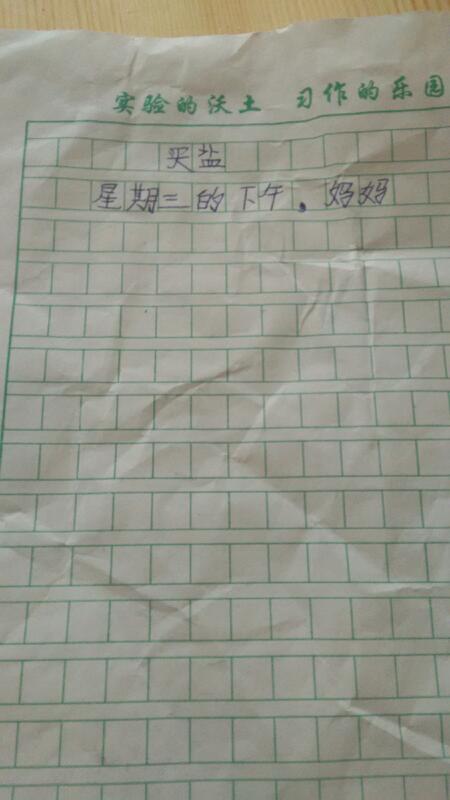 实验的沃土 习作的乐园
买盐
星期三的下午，妈妈